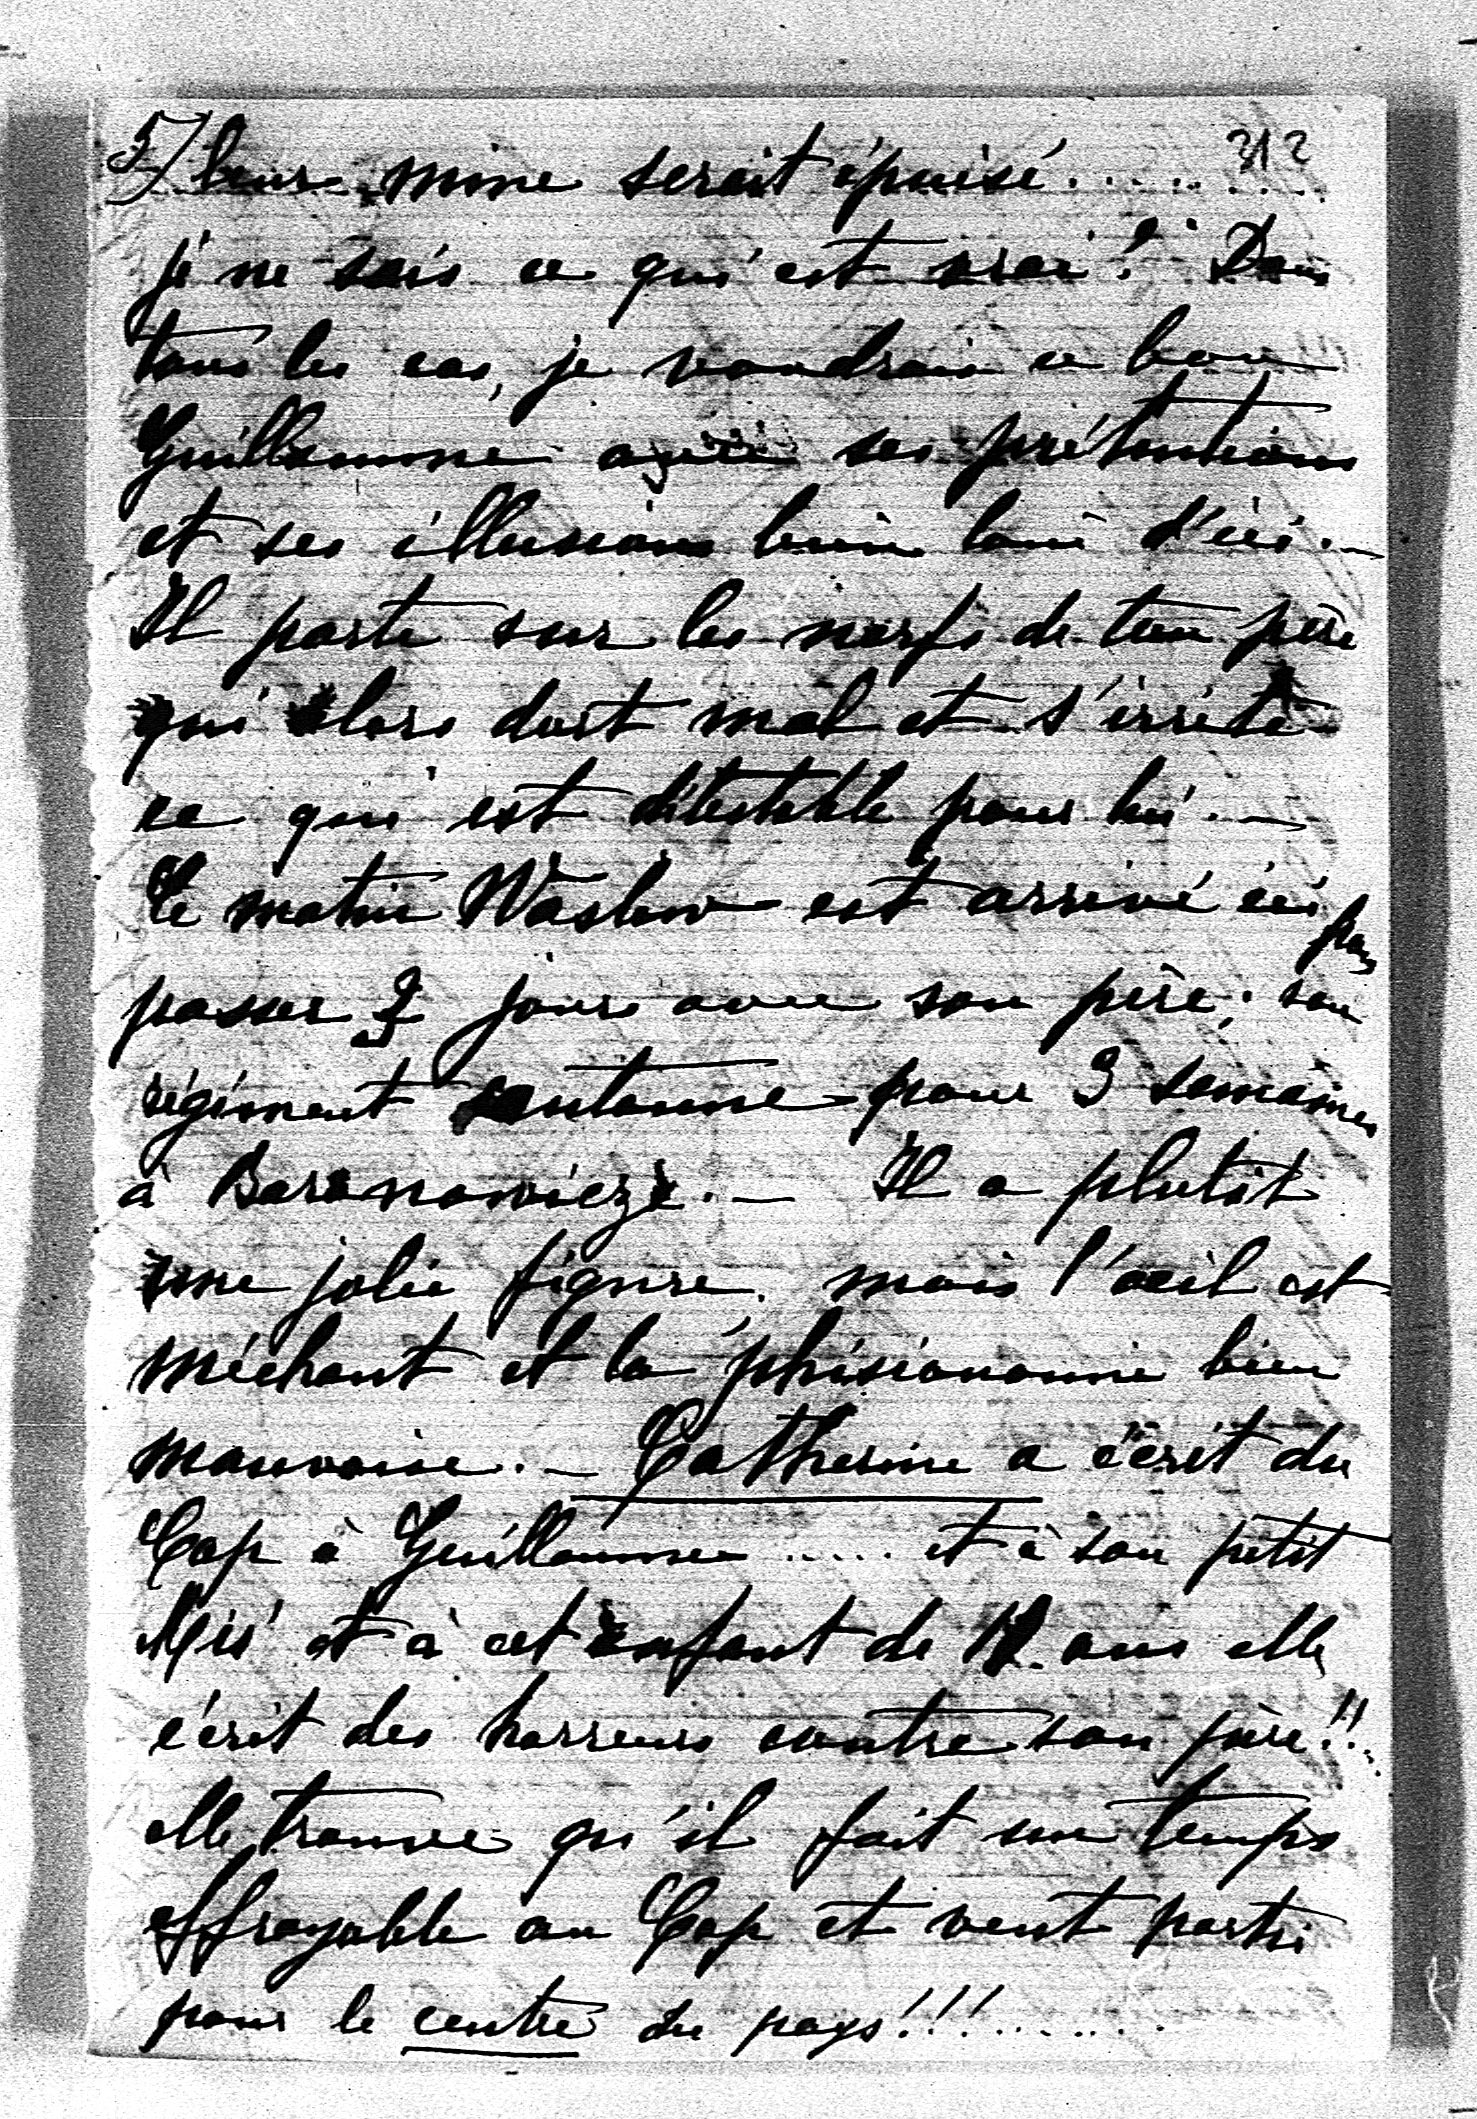 5/ 312
leur mine serait épuisé.........
je ne sais ce qui est vrai! Dans
tous les cas, je voudrais ce bon
Guillaume avec ses prétentions
et ses illusions bien loin d'ici. —
Il porte sur les nerfs de ton père
qui alors dort mal et s'irrite
ce qui est détestable pour lui. —
Ce matin Waslow est arrivé ici pour
passer 2 jours avec son père; son
régiment cantonne pour 3 semaines
à Baranowicze. — Il a plutôt
une jolie figure, mais l'œil est
méchant et la phisionomie bien
mauvaise. — Catherine a écrit du
Cap à Guillaume ..... et à son petit
et à cet enfant de 12 ans elle
écrit des horreurs contre son père!!
elle trouve qu'il fait un temps
effroyable au Cap et veut partir
pour le centre du pays!!!..........